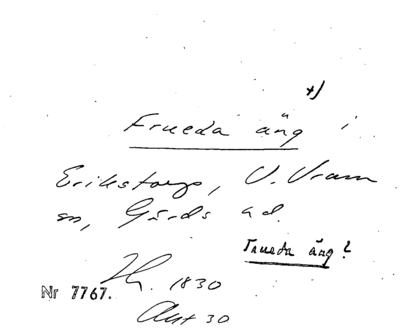 +)
Frueda äng i
Erikstorps, V. Vram
sn, Gärds hd.
Trueda äng?
1830
Nr 7767.
Akt 30